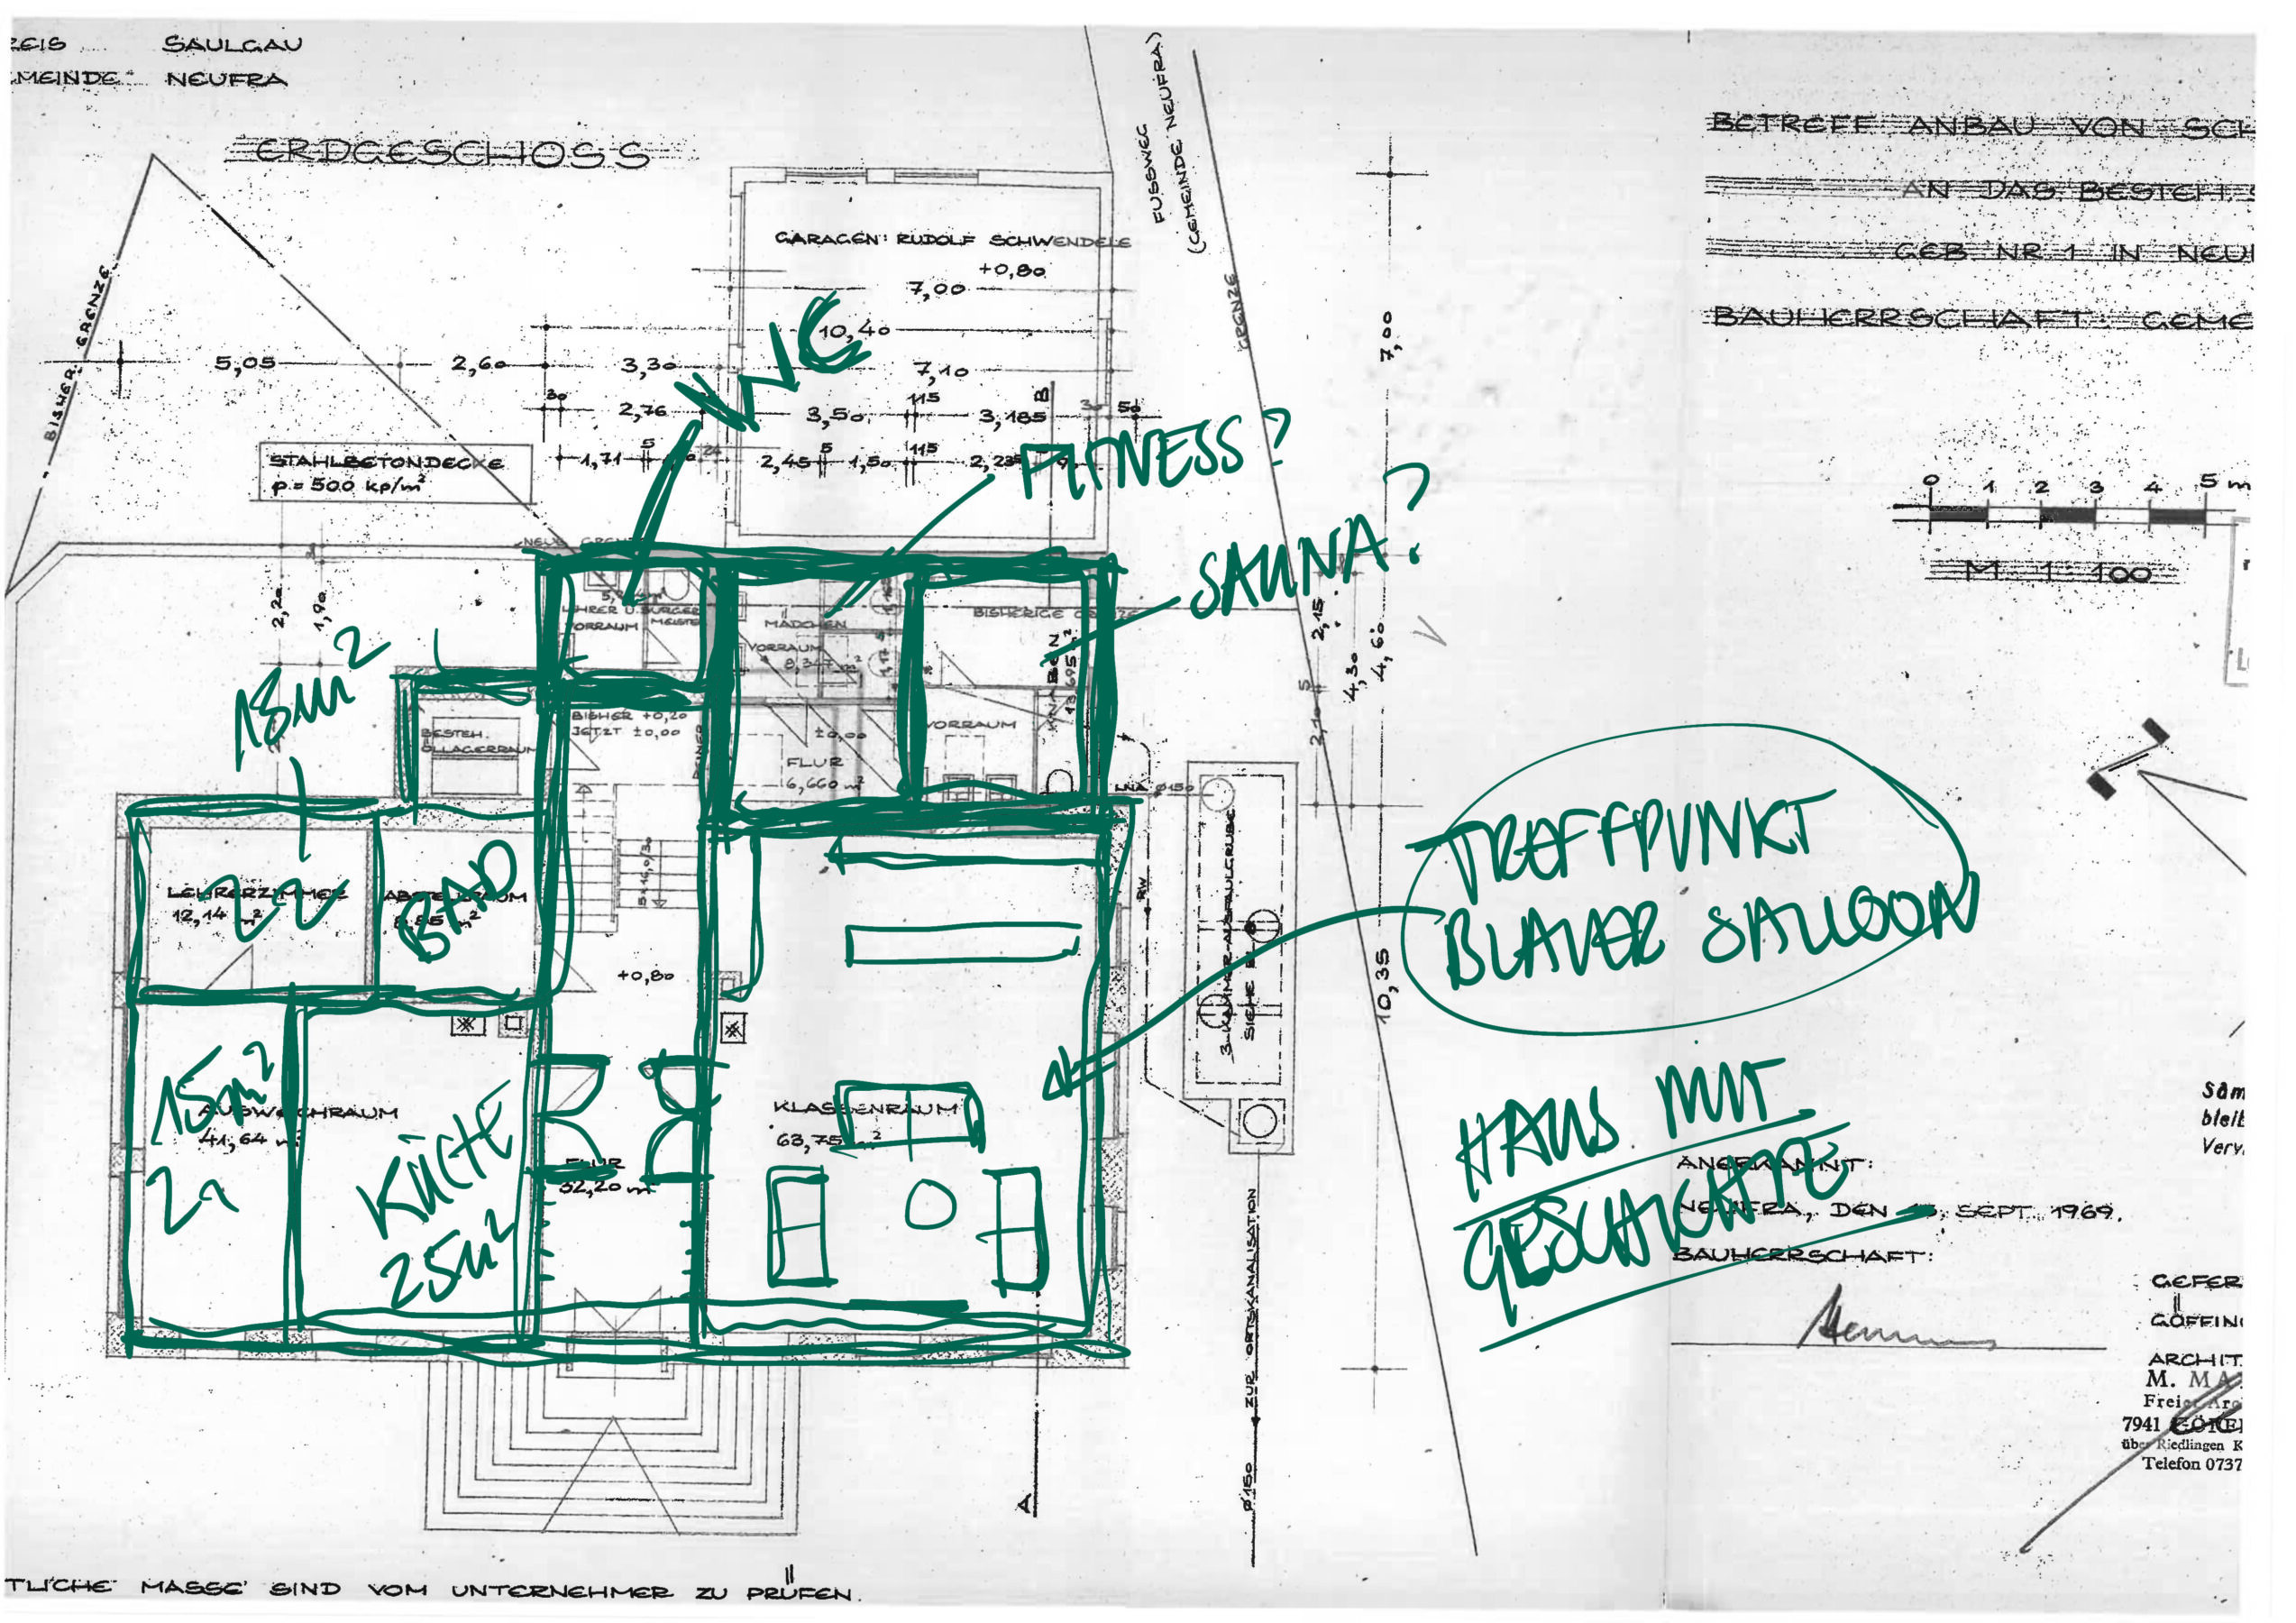 REIS SAULGAU
MEINDE NEUFRA
ERDGESCHOSS
BETREFF: ANBAU VON SCH
AN DAS BESTEH. S
GEB. NR. 1 IN NEU
BAUHERRSCHAFT: GEME
FUSSWEG
(GEMEINDE NEUFRA)
GRENZE
BISHER. GRENZE
GARAGEN: RUDOLF SCHWENDELE
+0,80
7,00
10,40
5,05
2,60
3,30
7,10
30
2,76
3,50
115
3,185
B
30
50
1,71
5
24
2,45
5
1,50
115
2,235
7,00
WC
FITNESS?
SAUNA?
STAHLBETONDECKE
p = 500 kp/m²
0 1 2 3 4 5 m
M 1:100
2,20
1,90
LEHRER U. BÜRGER
MEISTER
VORRAUM
MÄDCHEN
VORRAUM
8,347 m²
BISHERIGE GRENZE
KNABEN
13,695 m²
VORRAUM
2,15
4,30
4,60
2,10
5
18m²
BESTEH.
ÖLLAGERRAUM
BISHER +0,20
JETZT ±0,00
±0,00
FLUR
6,660 m²
LNA Ø150
RW
3-KAMMER-AUSFAULGRUBE
SIEHE
LEHRERZIMMER
12,14 m²
BAD
+0,80
10,35
TREFFPUNKT
BLAUER SALLOON
15m²
AUSWEICHRAUM
41,64 m²
KÜCHE
25m²
FLUR
32,20 m²
KLASSENRAUM
63,75 m²
HAUS MIT
GESCHICHTE
Säm
bleib
Verv
ANERKANNT:
NEUFRA, DEN SEPT. 1969.
BAUHERRSCHAFT:
GEFER
GÖFFIN
ARCHIT.
M. MA
Freier Arc
7941
über Riedlingen K
Telefon 0737
A
Ø150 ZUR ORTSKANALISATION
TLICHE MASSE SIND VOM UNTERNEHMER ZU PRÜFEN.